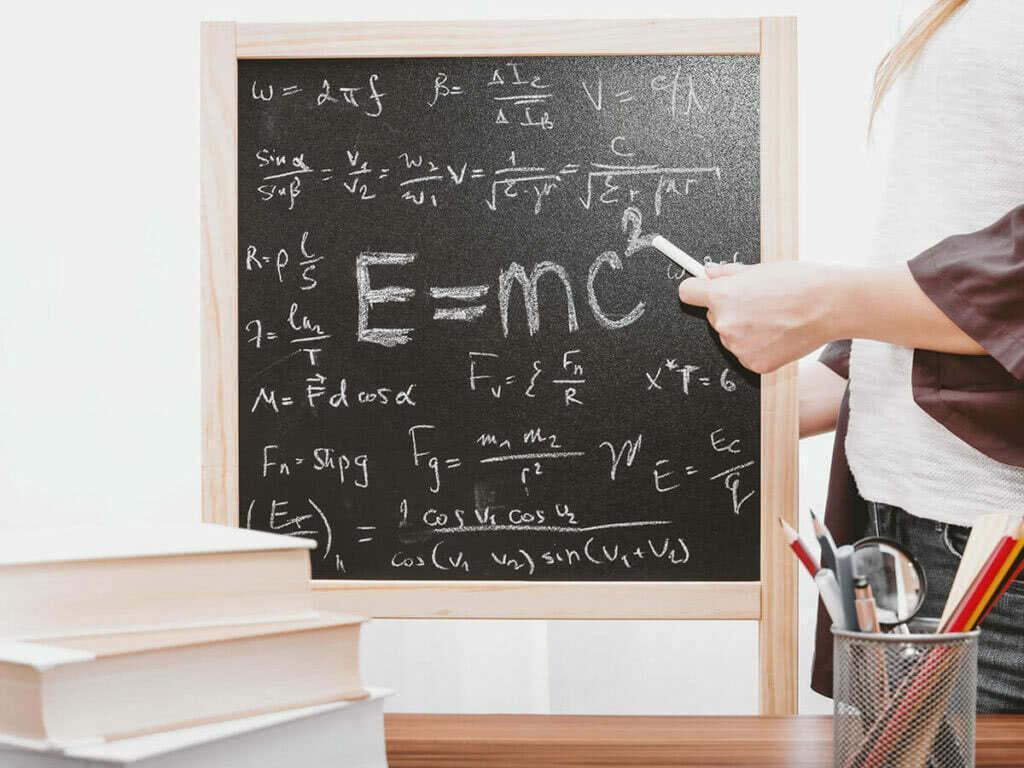 ω = 2πf β = ΔI_C / ΔI_B V = c/λ
sin α / sin β = v₁ / v₂ = w₂ / w₁ V = 1 / √(ε · μ) = C / √(ε r μ r)
R = ρ l / S
E = mc²
M = F⃗ d cos α
F_v = { F_n / R
x * T = 6
F_n = Slipg
F_g = m₁ m₂ / r² E = E_C / q
2 cos v₁ cos v₂ / cos(v₁ v₂) sin(v₁ + v₂)